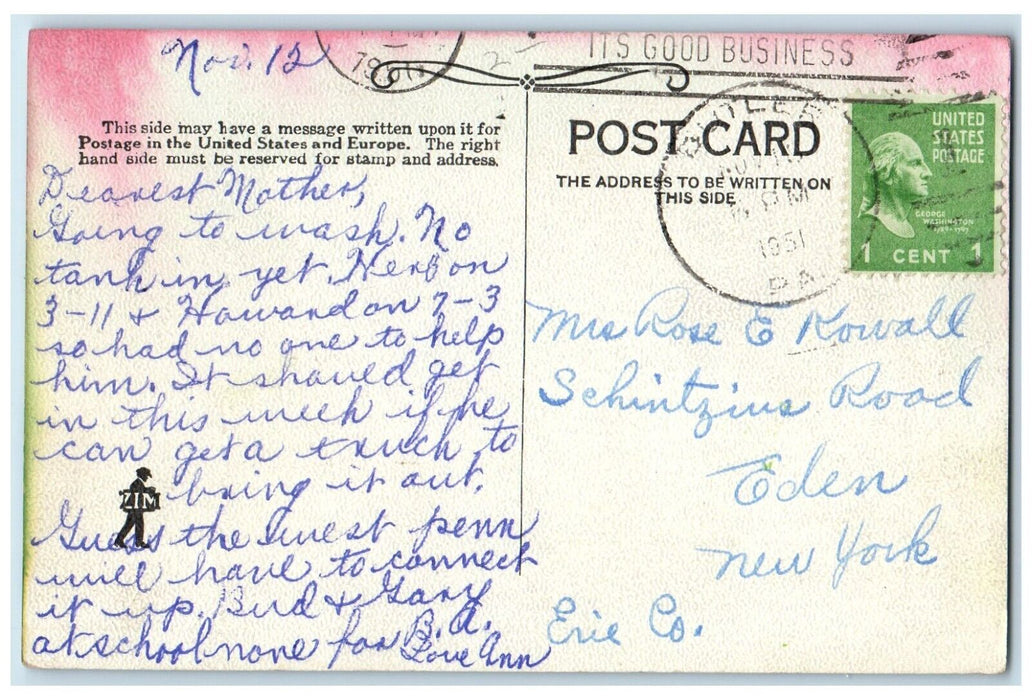 Nov. 12
ITS GOOD BUSINESS
This side may have a message written upon it for
Postage in the United States and Europe. The right
hand side must be reserved for stamp and address.
Dearest Mother,
Going to wash. No
tank in yet. Herb on
3-11 & Howard on 7-3
so had no one to help
him. It should get
in this week if he
can get a truck to
bring it out.
ZIM
Guess the west penn
will have to connect
it up. Bud & Gary
at school none for B.A.
Love Ann
POST CARD
THE ADDRESS TO BE WRITTEN ON
THIS SIDE
BUTLER
PM
1951
PA.
UNITED
STATES
POSTAGE
GEORGE
WASHINGTON
1789-1797
1 CENT 1
Mrs Rose E Kowall
Schintzius Road
Eden
New York
Erie Co.